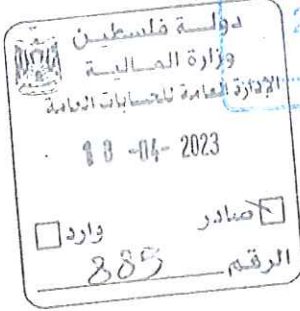 دولة فلسطين
وزارة المالية
الإدارة العامة للحسابات العامة
18 -04- 2023
صادر
وارد
الرقم 885